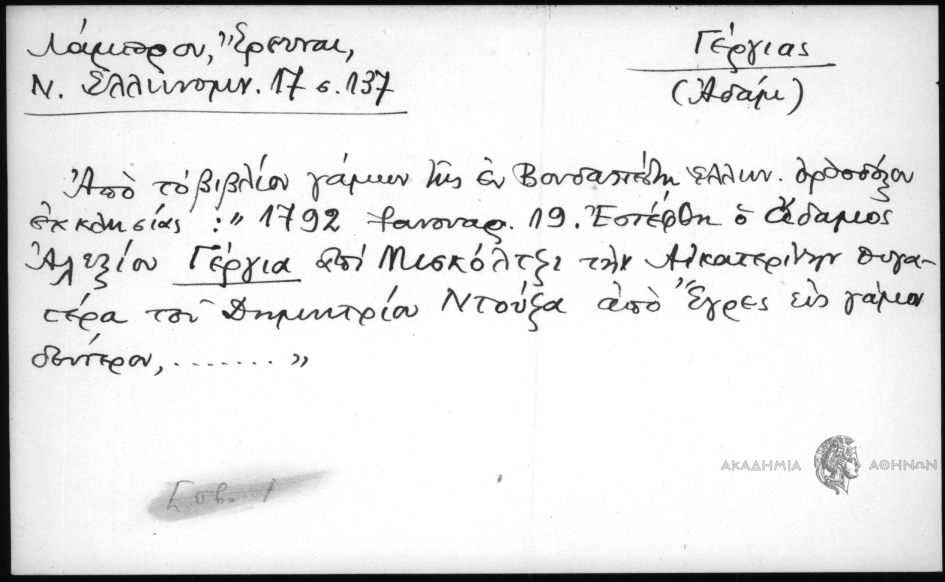 Λάμπρου, Ἔρευναι,
Ν. Ἑλληνομν. 17 σ. 137
Γέργιας
(Ἀδάμ)
Ἀπὸ τὸ βιβλίον γάμων τῆς ἐν Βουδαπέστῃ ἑλλην. ὀρθοδόξου
ἐκκλησίας :" 1792 Ἰανουαρ. 19. Ἐστέφθη ὁ Ἀδάμιος
Ἀλεξίου Γέργια ἀπὸ Μισκόλτζι τὴν Αἰκατερίνην θυγα-
τέρα τοῦ Δημητρίου Ντούζα ἀπὸ Ἔγρες εἰς γάμον
δεύτερον, ........"
ΑΚΑΔΗΜΙΑ ΑΘΗΝΩΝ